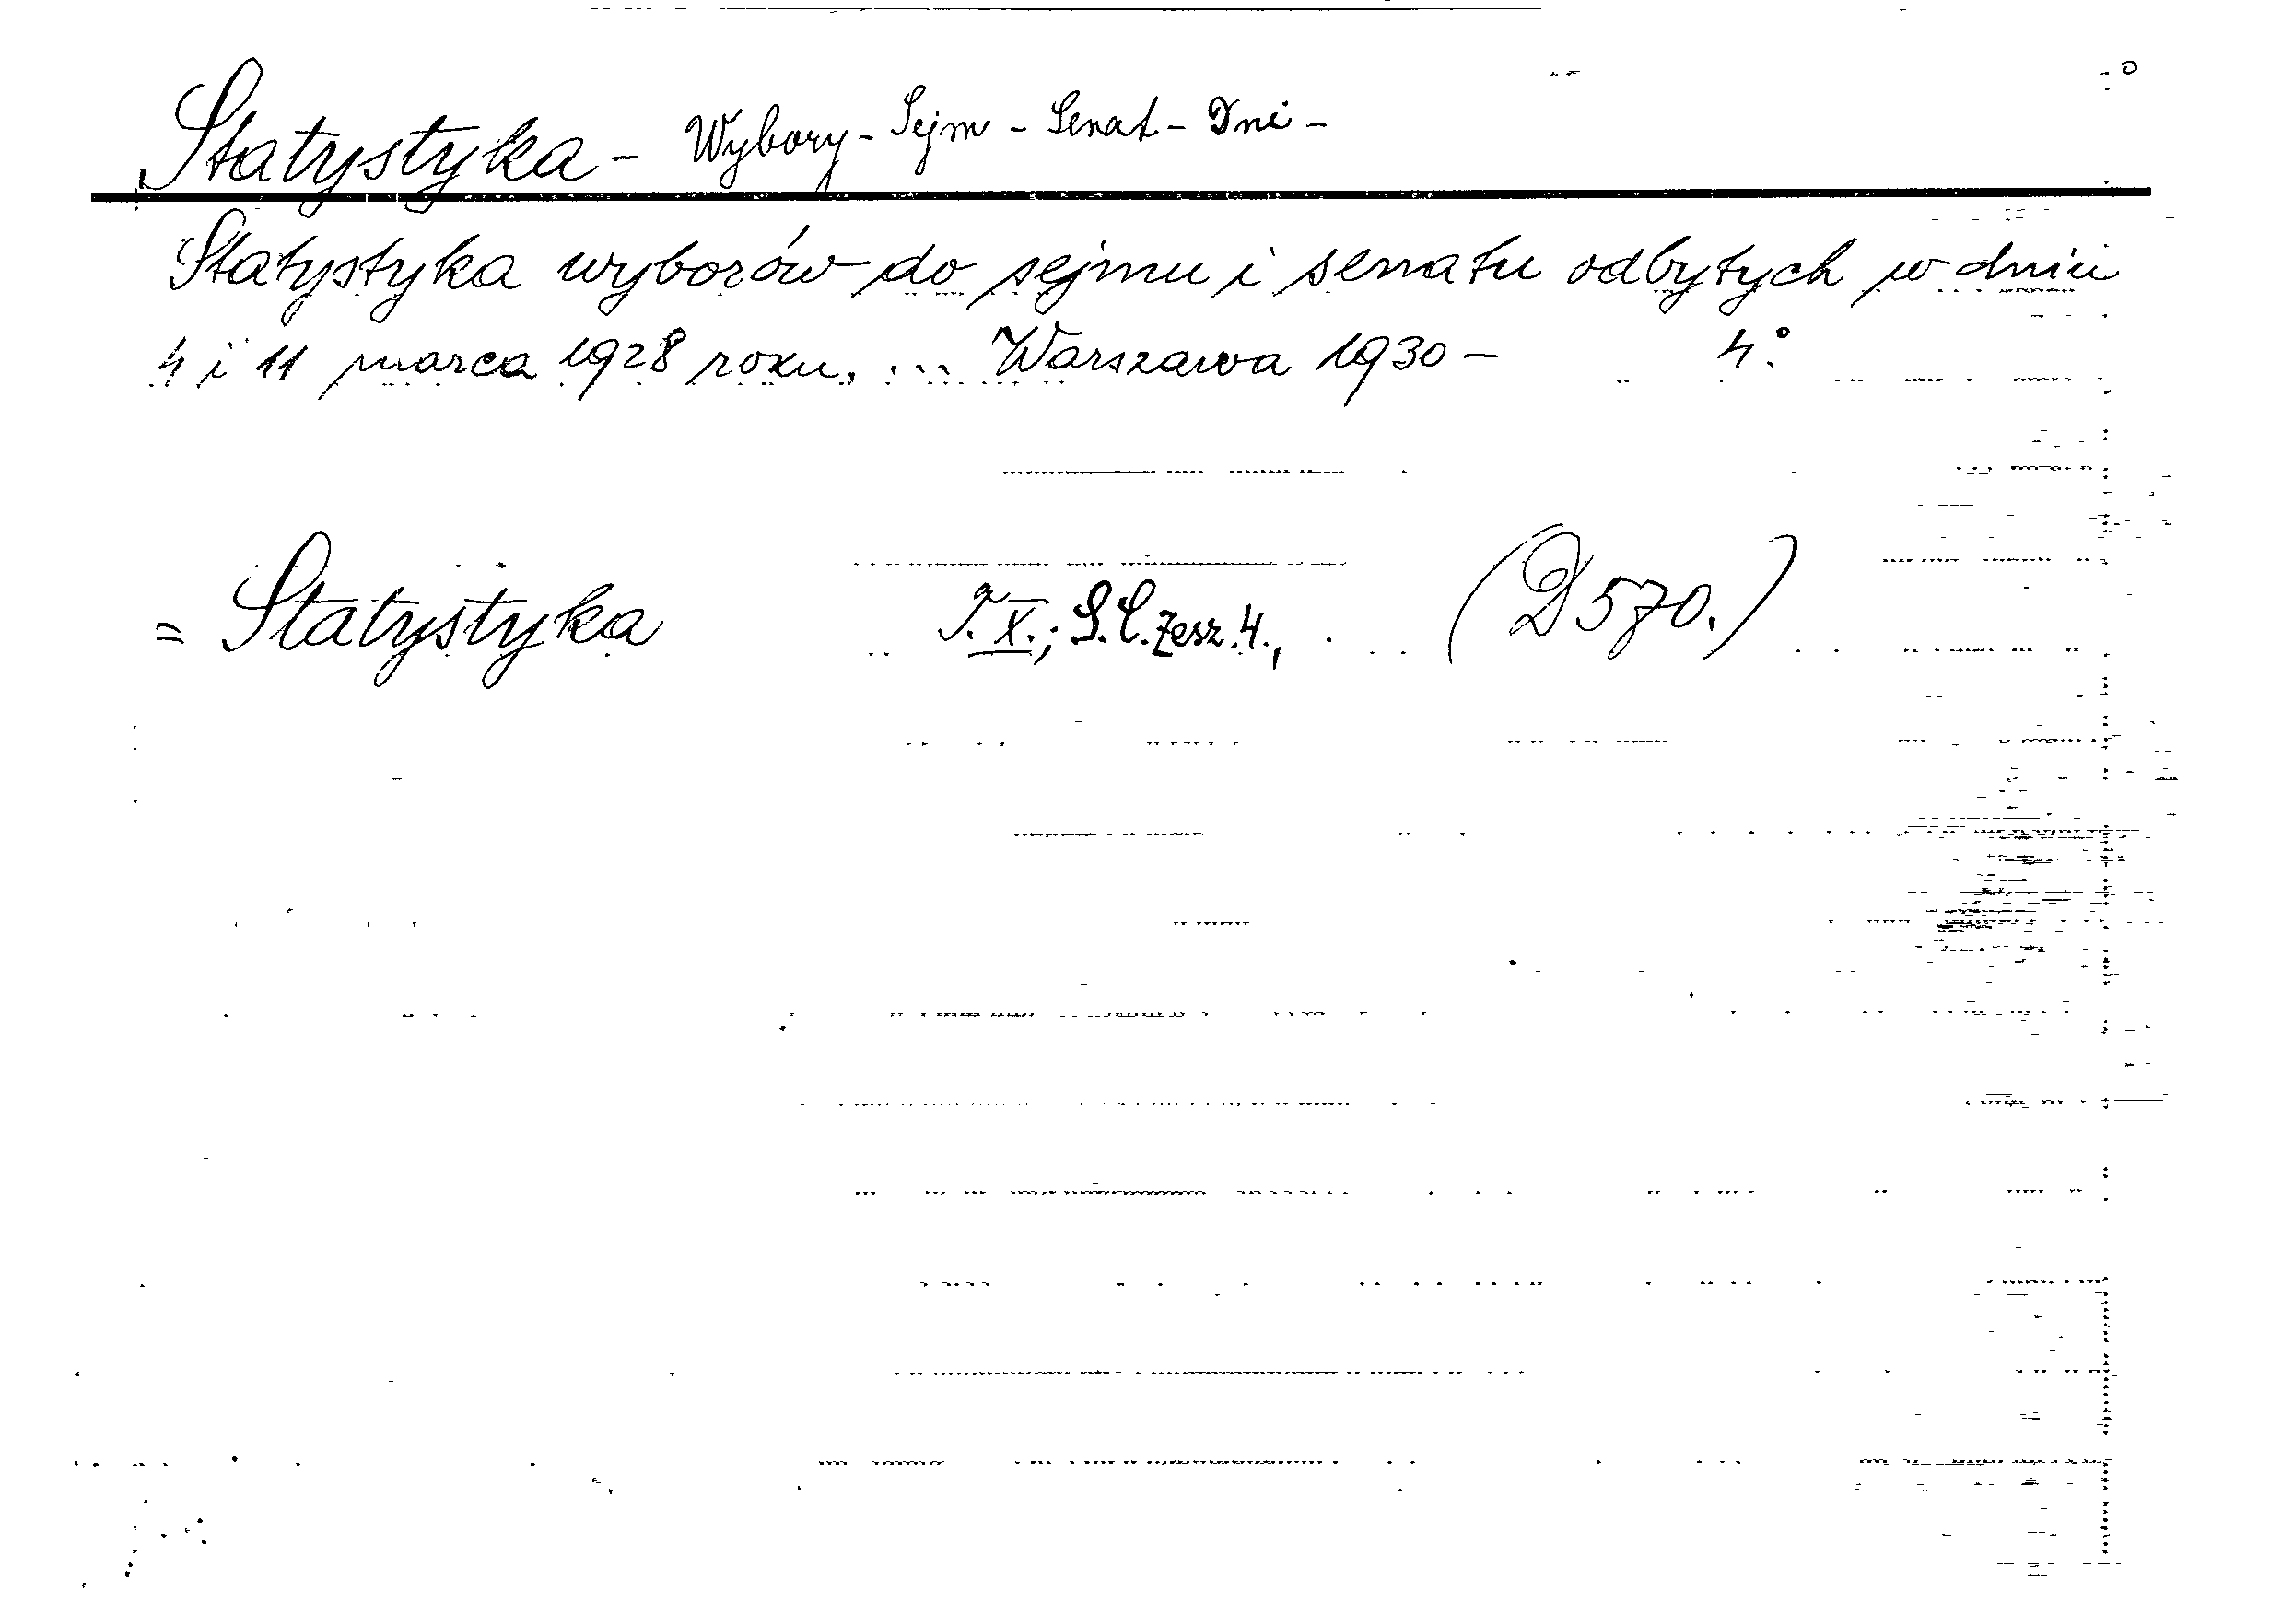 Statystyka - Wybory - Sejm - Senat - Dni -
Statystyka wyborów do sejmu i senatu odbytych w dniu
4 i 11 marca 1928 roku. ... Warszawa 1930 - 4°
= Statystyka T. X.; S.C. zesz. 4., (D 570.)